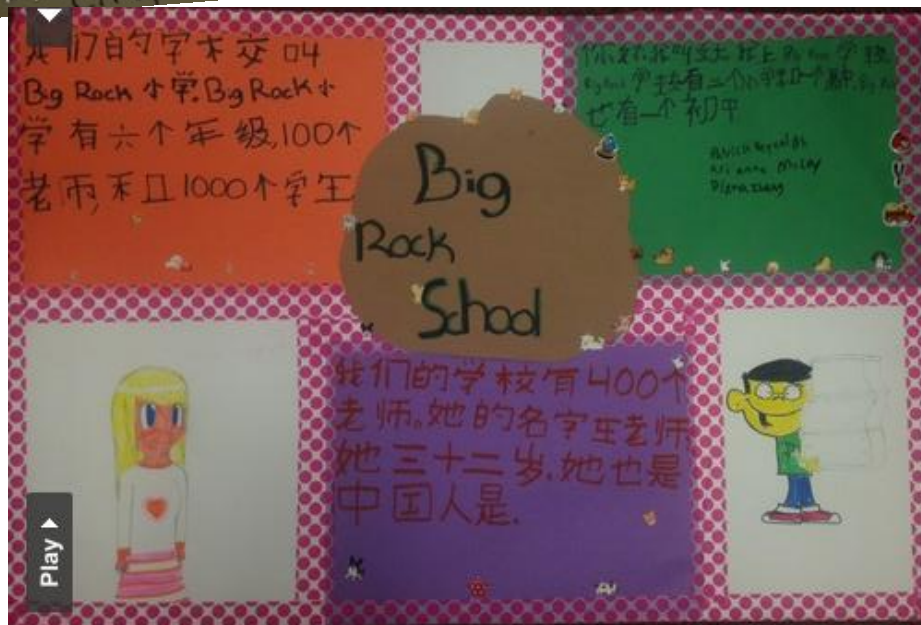 我们的学校叫
Big Rock 小学.Big Rock 小
学有六个年级,100个
老师,和且1000个学生
Big
Rock
School
你好,我叫
学校
Big Rock 学校有二个小学和一个高中.Big Ro
也有一个初中
Patrick Reynolds
我们的学校有400个
老师。她的名字生老师
她三十二岁.她也是
中国人是.
Play